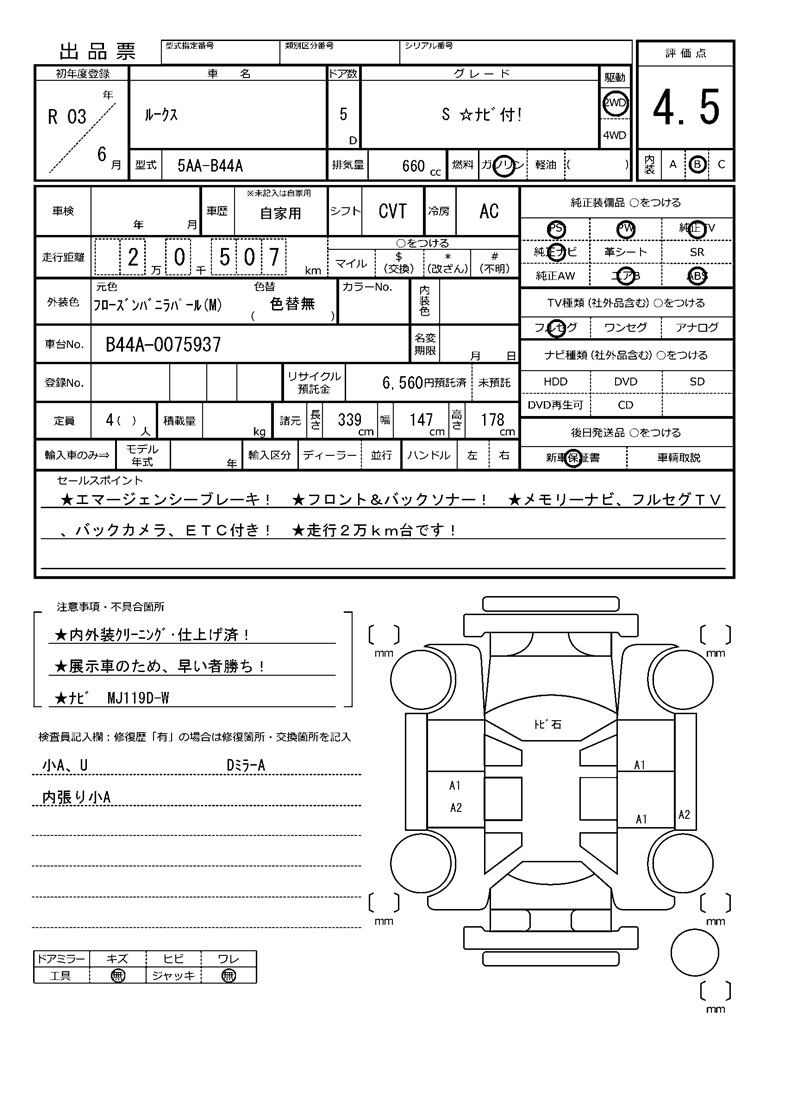 出品票
型式指定番号 類別区分番号 シリアル番号
評価点
4.5
初年度登録 車名 ドア数 グレード 駆動
R 03 年 6 月 ルークス 5 D S ☆ナビ付! 2WD
4WD
型式 5AA-B44A 排気量 660 cc 燃料 ガソリン 軽油 ( )
内装 A B C
車検 年 月 車歴 ※未記入は自家用
自家用 シフト CVT 冷房 AC
純正装備品 ○をつける
PS PW 純正TV
純正ナビ 革シート SR
純正AW エアB ABS
走行距離 2 万 0 千 5 0 7 km
○をつける
マイル $ (交換) * (改ざん) # (不明)
外装色 元色 フローズンバニラパール(M) 色替 ( 色替無 ) カラーNo. 内装色
TV種類(社外品含む)○をつける
フルセグ ワンセグ アナログ
車台No. B44A-0075937 名変期限 月 日
ナビ種類(社外品含む)○をつける
HDD DVD SD
DVD再生可 CD
登録No. リサイクル預託金 6,560円預託済 未預託
定員 4( ) 人 積載量 kg 諸元 長さ 339 cm 幅 147 cm 高さ 178 cm
後日発送品 ○をつける
新車保証書 車輌取説
輸入車のみ⇒ モデル年式 年 輸入区分 ディーラー 並行 ハンドル 左 右
セールスポイント
★エマージェンシーブレーキ! ★フロント&バックソナー! ★メモリーナビ、フルセグTV
、バックカメラ、ETC付き! ★走行2万km台です!
注意事項・不具合箇所
★内外装クリーニング・仕上げ済!
★展示車のため、早い者勝ち!
★ナビ MJ119D-W
検査員記入欄:修復歴「有」の場合は修復箇所・交換箇所を記入
小A、U DミラーA
内張り小A
ドアミラー キズ ヒビ ワレ
工具 無 ジャッキ 無
mm mm
トビ石
A1
A1
A2
A1 A2
mm mm
mm